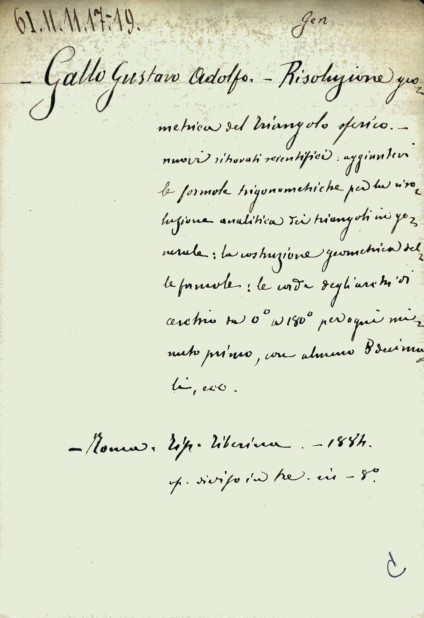 61.11.11.17-19.
Gen
— Gallo Gustavo Adolfo. — Risoluzione geo-
metrica del triangolo sferico. —
nuovi ritrovati scientifici: aggiuntevi
le formole trigonometriche per la riso-
luzione analitica dei triangoli in ge-
nerale: la costruzione geometrica del-
le formole: le corde degli archi di
cerchio da 0° a 180° per ogni mi-
nuto primo, con almeno 8 decima-
li, ecc.
— Roma. Tip. Tiberina. — 1884.
op. divisa in tre. in — 8°.